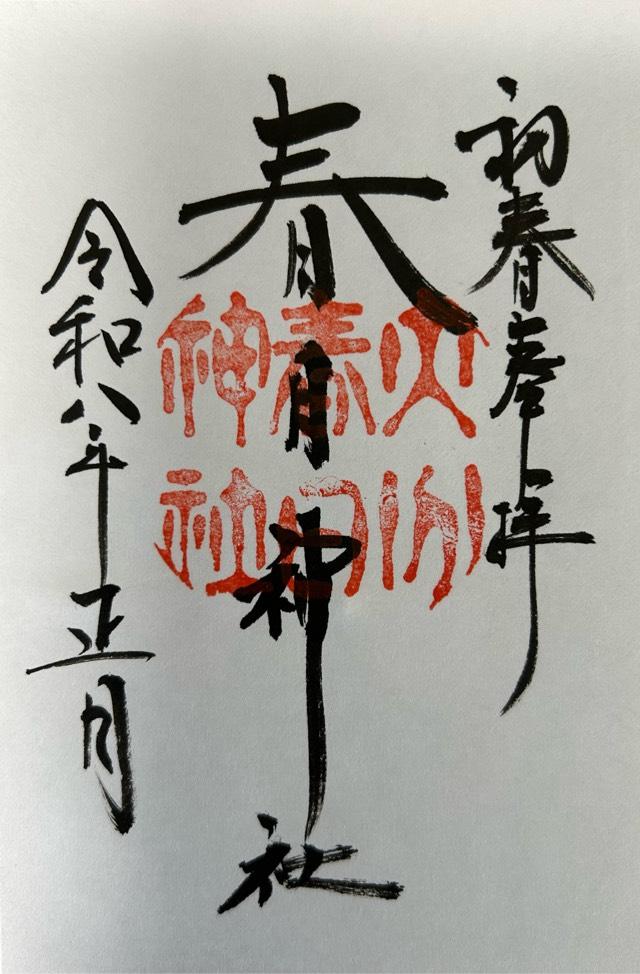 初春奉拝
春日神社
火川
春日
神社
令和八年正月